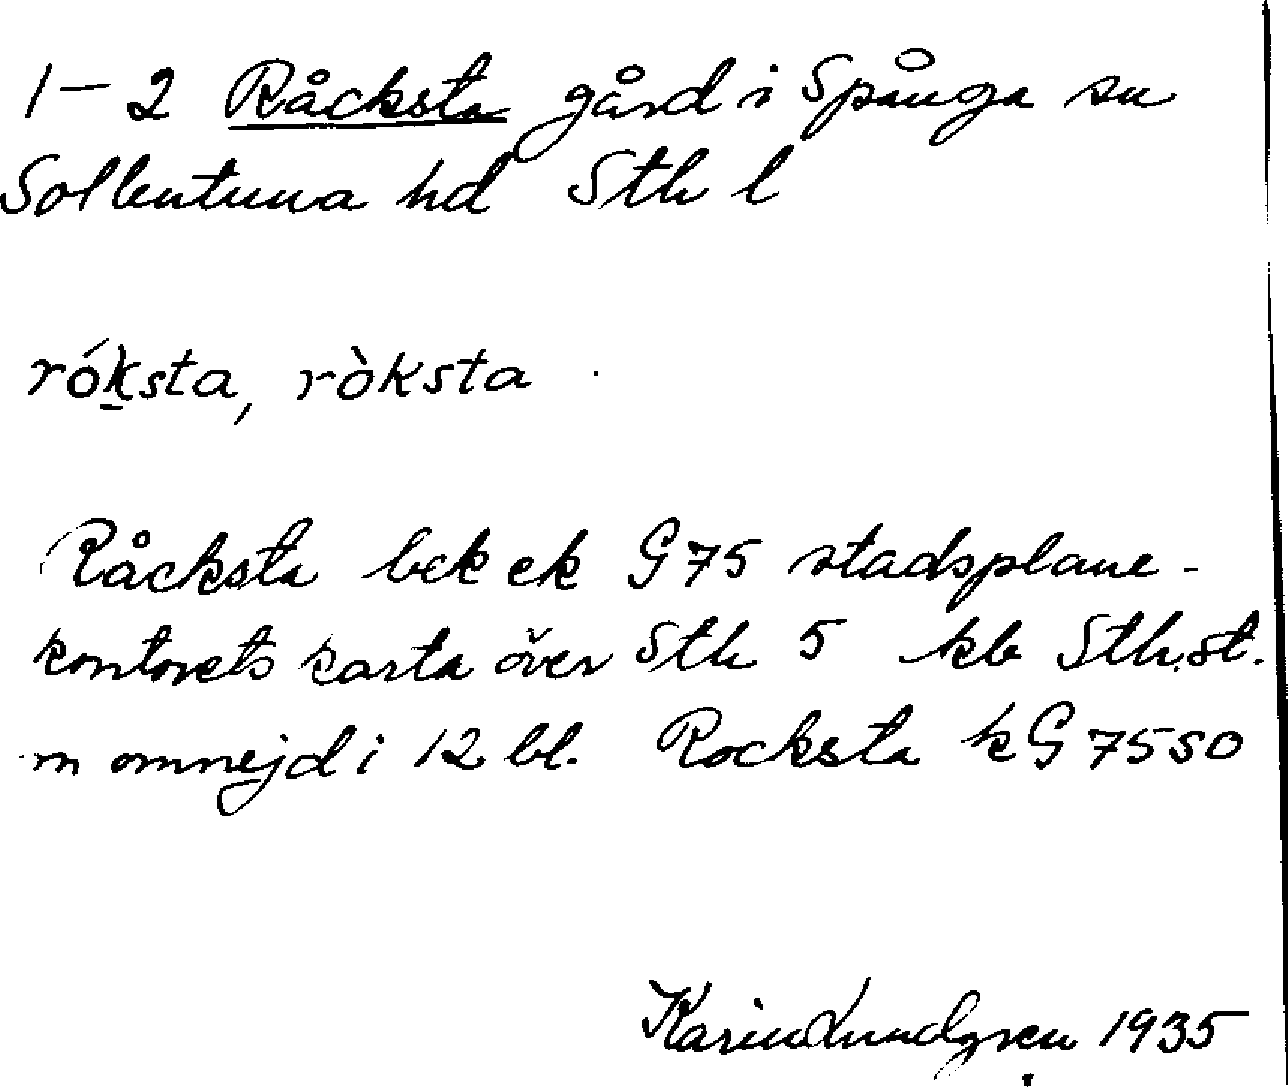 1–2 Råcksta gård i Spånga sn
Sollentuna hd Sth l
róksta, ròksta
Råcksta bek ek G 75 stadsplane-
kontorets karta över Sth 5 kb Sth.st.
m omnejd i 12 bl. Rocksta k G 75 SO
Karin Lundgren 1935